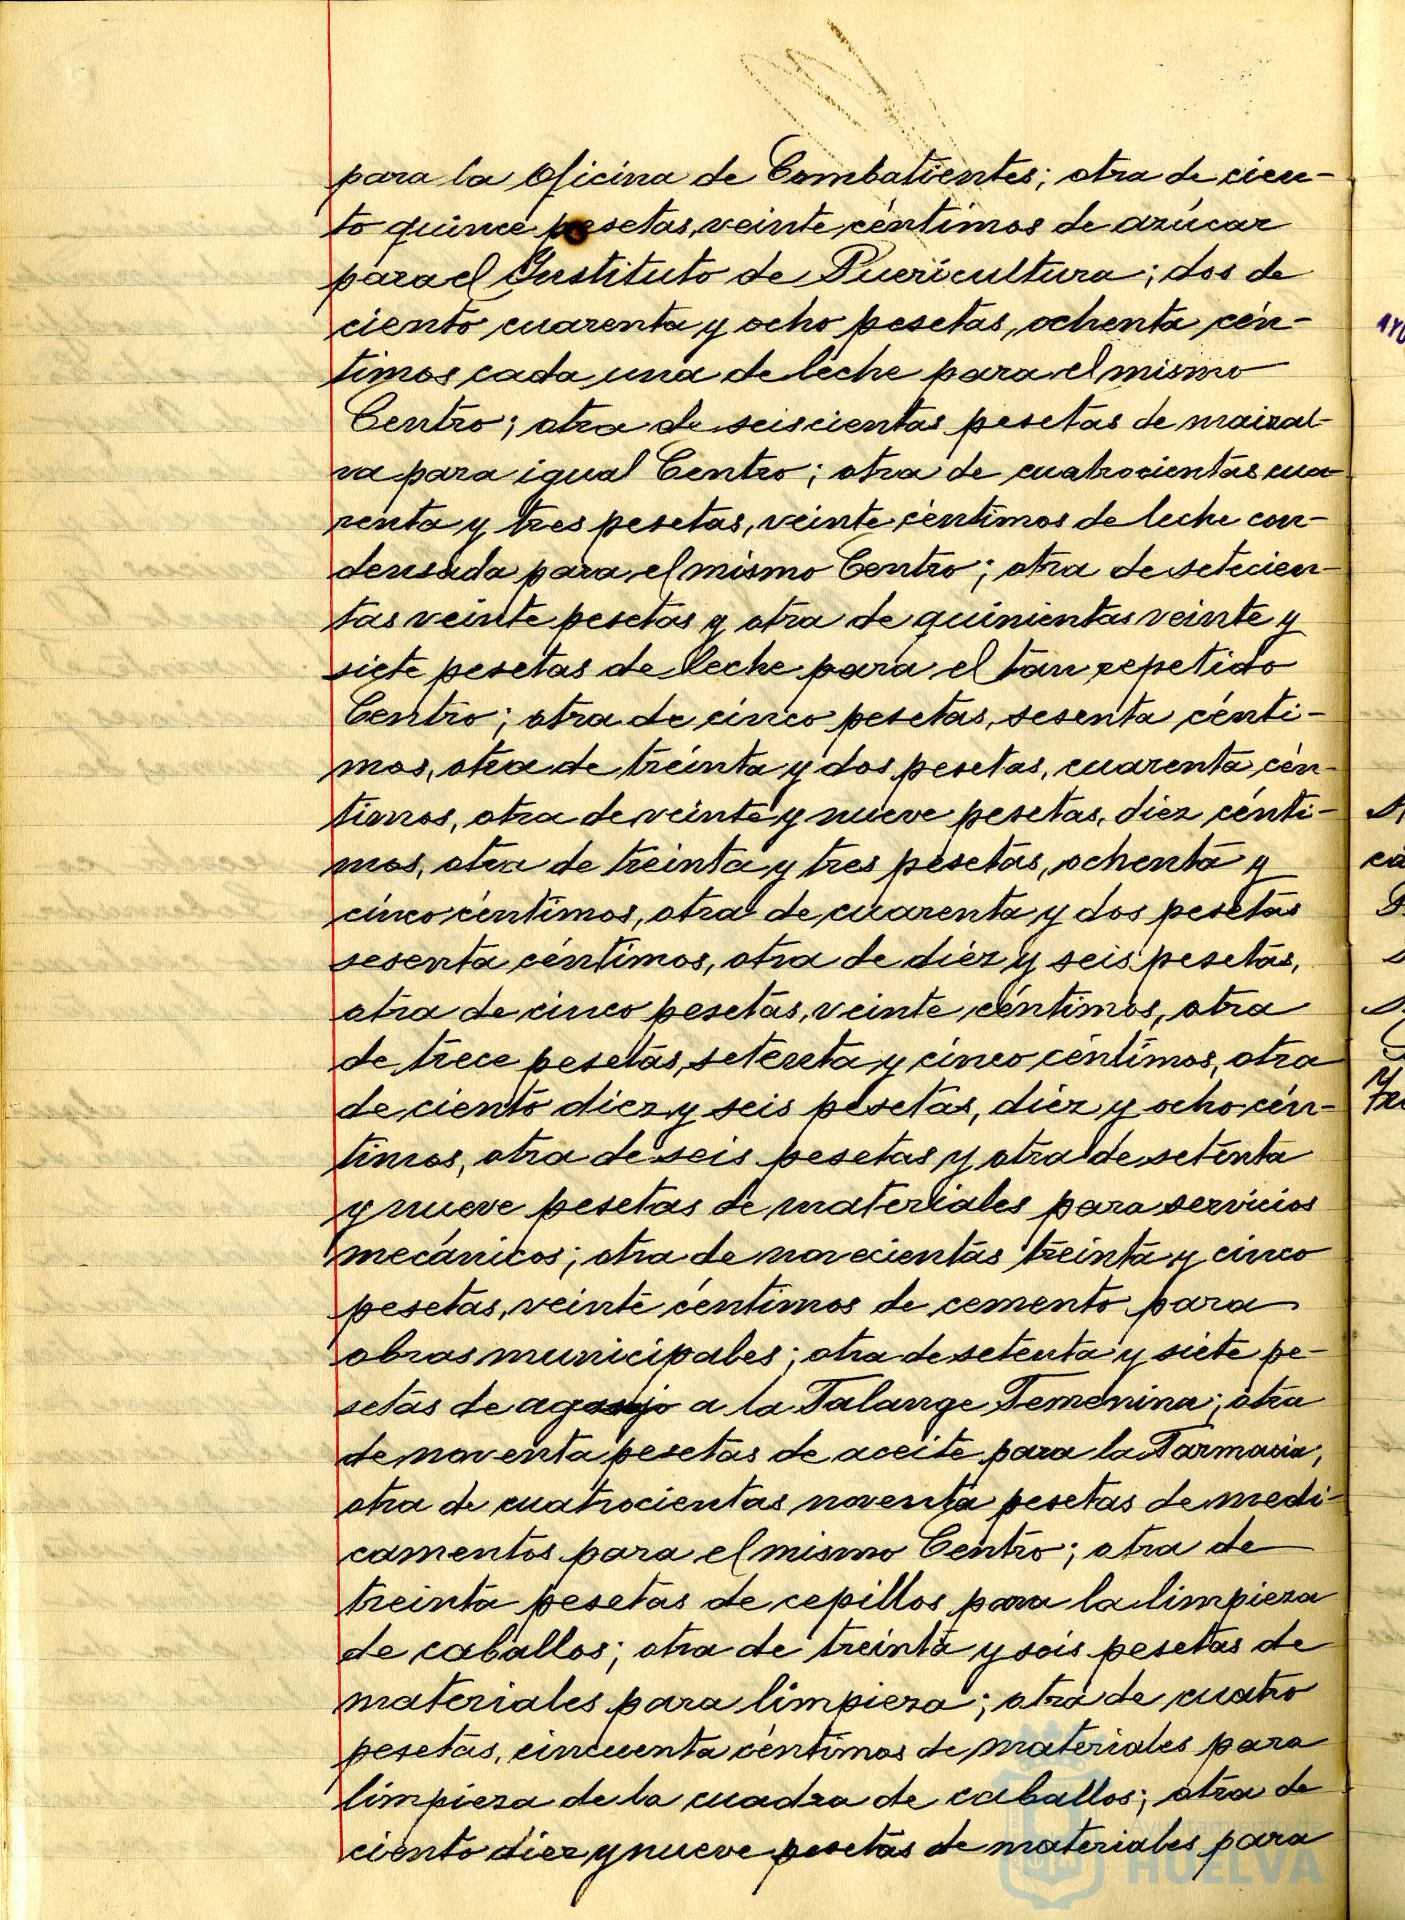 para la Oficina de Combatientes; otra de cien-
to quince pesetas, veinte céntimos de azúcar
para el Instituto de Puericultura; dos de
ciento cuarenta y ocho pesetas, ochenta cén-
timos cada una de leche para el mismo
Centro; otra de seiscientas pesetas de maizal-
va para igual Centro; otra de cuatrocientas cua-
renta y tres pesetas, veinte céntimos de leche con-
densada para el mismo Centro; otra de setecien-
tas veinte pesetas y otra de quinientas veinte y
siete pesetas de leche para el tan repetido
Centro; otra de cinco pesetas, sesenta cénti-
mos, otra de treinta y dos pesetas, cuarenta cén-
timos, otra de veinte y nueve pesetas, diez cénti-
mos, otra de treinta y tres pesetas, ochenta y
cinco céntimos, otra de cuarenta y dos pesetas
sesenta céntimos, otra de diez y seis pesetas,
otra de cinco pesetas, veinte céntimos, otra
de trece pesetas, setenta y cinco céntimos, otra
de ciento diez y seis pesetas, diez y ocho cén-
timos, otra de seis pesetas y otra de setenta
y nueve pesetas de materiales para servicios
mecánicos; otra de novecientas treinta y cinco
pesetas, veinte céntimos de cemento para
obras municipales; otra de setenta y siete pe-
setas de agasajo a la Falange Femenina; otra
de noventa pesetas de aceite para la Farmacia;
otra de cuatrocientas noventa pesetas de medi-
camentos para el mismo Centro; otra de
treinta pesetas de cepillos para la limpieza
de caballos; otra de treinta y seis pesetas de
materiales para limpieza; otra de cuatro
pesetas, cincuenta céntimos de materiales para
limpieza de la cuadra de caballos; otra de
ciento diez y nueve pesetas de materiales para
Ayuntamiento de
HUELVA